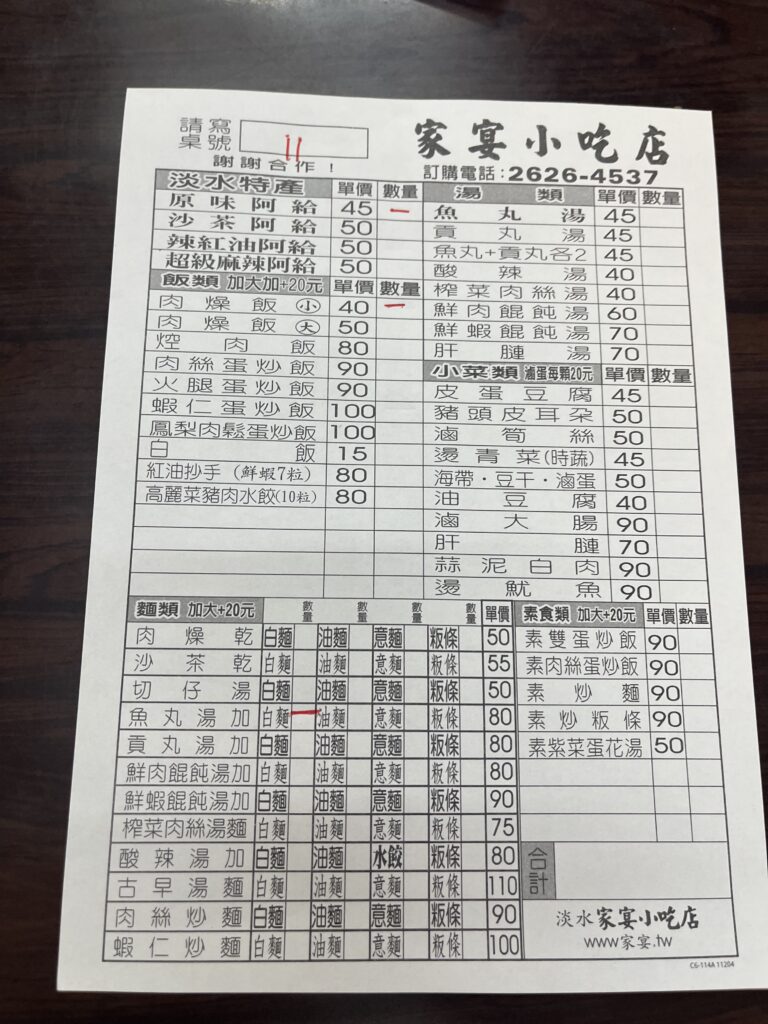 請寫桌號 11
謝謝合作！
家宴小吃店
訂購電話：2626-4537
淡水特產 單價 數量
原味阿給 45 一
沙茶阿給 50
辣紅油阿給 50
超級麻辣阿給 50
飯類 加大加+20元 單價 數量
肉燥飯(小) 40 一
肉燥飯(大) 50
焢肉飯 80
肉絲蛋炒飯 90
火腿蛋炒飯 90
蝦仁蛋炒飯 100
鳳梨肉鬆蛋炒飯 100
白飯 15
紅油抄手(鮮蝦7粒) 80
高麗菜豬肉水餃(10粒) 80
湯類 單價 數量
魚丸湯 45
貢丸湯 45
魚丸+貢丸各2 45
酸辣湯 40
榨菜肉絲湯 40
鮮肉餛飩湯 60
鮮蝦餛飩湯 70
肝膧湯 70
小菜類 滷蛋每顆20元 單價 數量
皮蛋豆腐 45
豬頭皮耳朵 50
滷筍絲 50
燙青菜(時蔬) 45
海帶・豆干・滷蛋 50
油豆腐 40
滷大腸 90
肝膧 70
蒜泥白肉 90
燙魷魚 90
麵類 加大+20元 數量 數量 數量 數量 單價
肉燥乾 白麵 油麵 意麵 粄條 50
沙茶乾 白麵 油麵 意麵 粄條 55
切仔湯 白麵 油麵 意麵 粄條 50
魚丸湯加 白麵 一 油麵 意麵 粄條 80
貢丸湯加 白麵 油麵 意麵 粄條 80
鮮肉餛飩湯加 白麵 油麵 意麵 粄條 80
鮮蝦餛飩湯加 白麵 油麵 意麵 粄條 90
榨菜肉絲湯麵 白麵 油麵 意麵 粄條 75
酸辣湯加 白麵 油麵 水餃 粄條 80
古早湯麵 白麵 油麵 意麵 粄條 110
肉絲炒麵 白麵 油麵 意麵 粄條 90
蝦仁炒麵 白麵 油麵 意麵 粄條 100
素食類 加大+20元 單價 數量
素雙蛋炒飯 90
素肉絲蛋炒飯 90
素炒麵 90
素炒粄條 90
素紫菜蛋花湯 50
合計
淡水家宴小吃店
www家宴.tw
C6-114A 11204